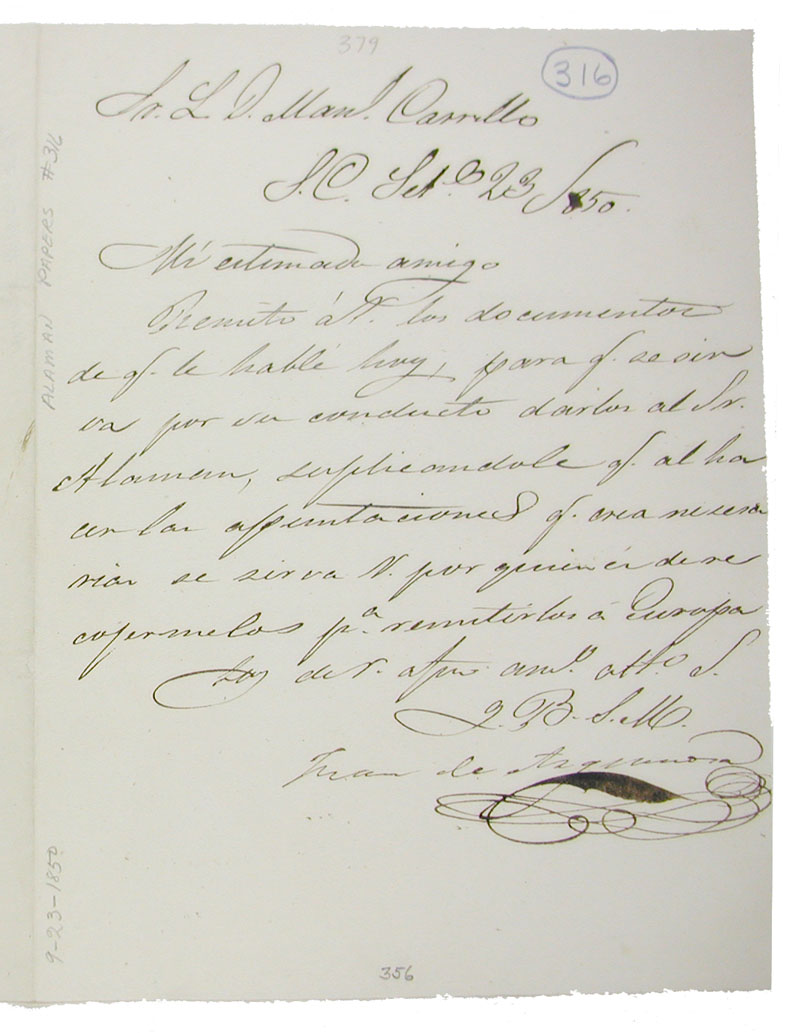 379
316
Sr. L. D. Manl. Carrillo
S.C. Set.e 23/850.
Mi estimado amigo
Remito á V. los documentos
de q. le hablé hoy, para q. se sir
va por su conducto darlos al Sr.
Alaman, suplicandole q. al ha
cer las apuntaciones q. crea necesa
rias se sirva V. por quien es de re
cojermelos pa. remitirlos á Europa
Soy de V. afmo amo. atto. S.
Q. B. S. M.
Juan de
ALAMAN PAPERS #316
9-23-1850
356